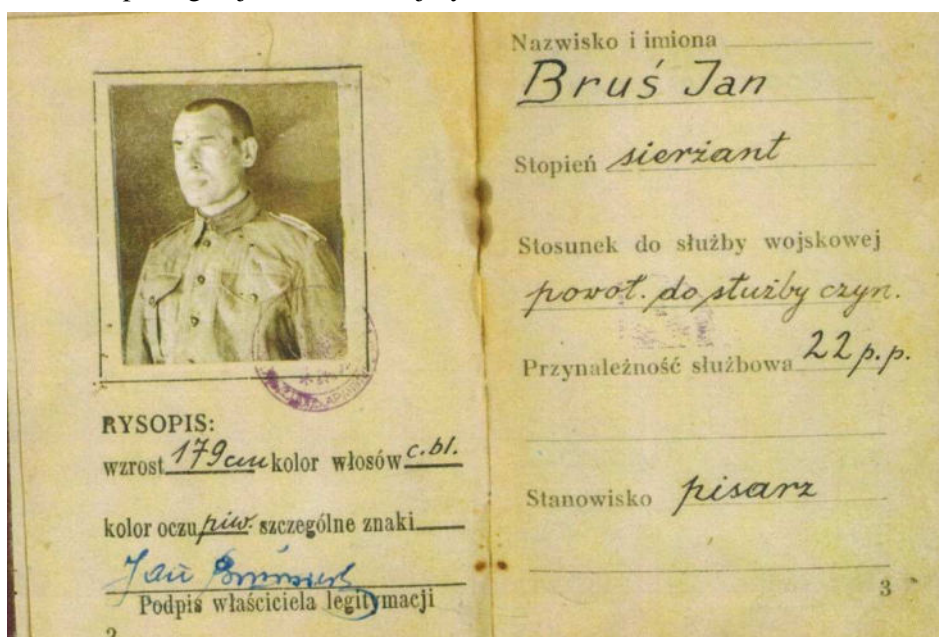 RYSOPIS:
wzrost 179 cm kolor włosów c.bl.
kolor oczu piw. szczególne znaki
Jan
Podpis właściciela legitymacji
2
Nazwisko i imiona
Bruś Jan
Stopień sierżant
Stosunek do służby wojskowej
powoł. do służby czyn.
Przynależność służbowa 22 p.p.
Stanowisko pisarz
3